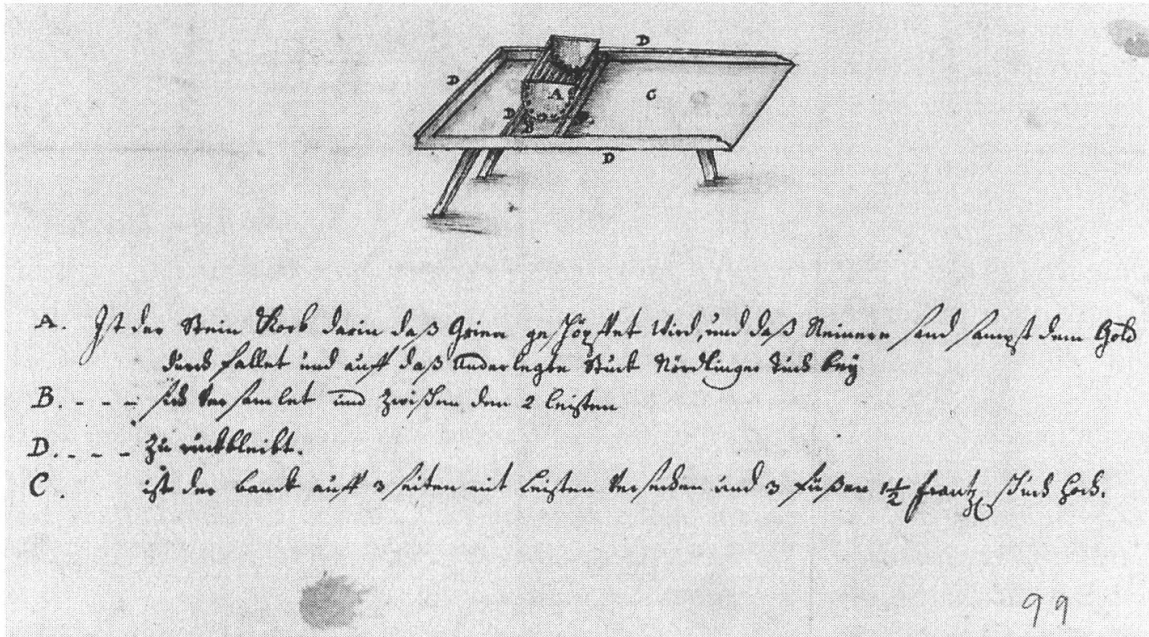 D
D
A
C
D
B
D
A. Ist der Stein Korb darin daß Grien geschöpffet wird, und daß Kleinere sand sampt dem Gold
durch fallet und auff daß Underlegte Stuck Nördlinger Tuch bey
B. - - - sich Versamlet und zwischen den 2 leisten
D. - - - Zu ruckbleibt.
C. ist der banck auff 3 seiten mit Leisten Versehen und 3 füßen 1½ frantz. schuch hoch.
99